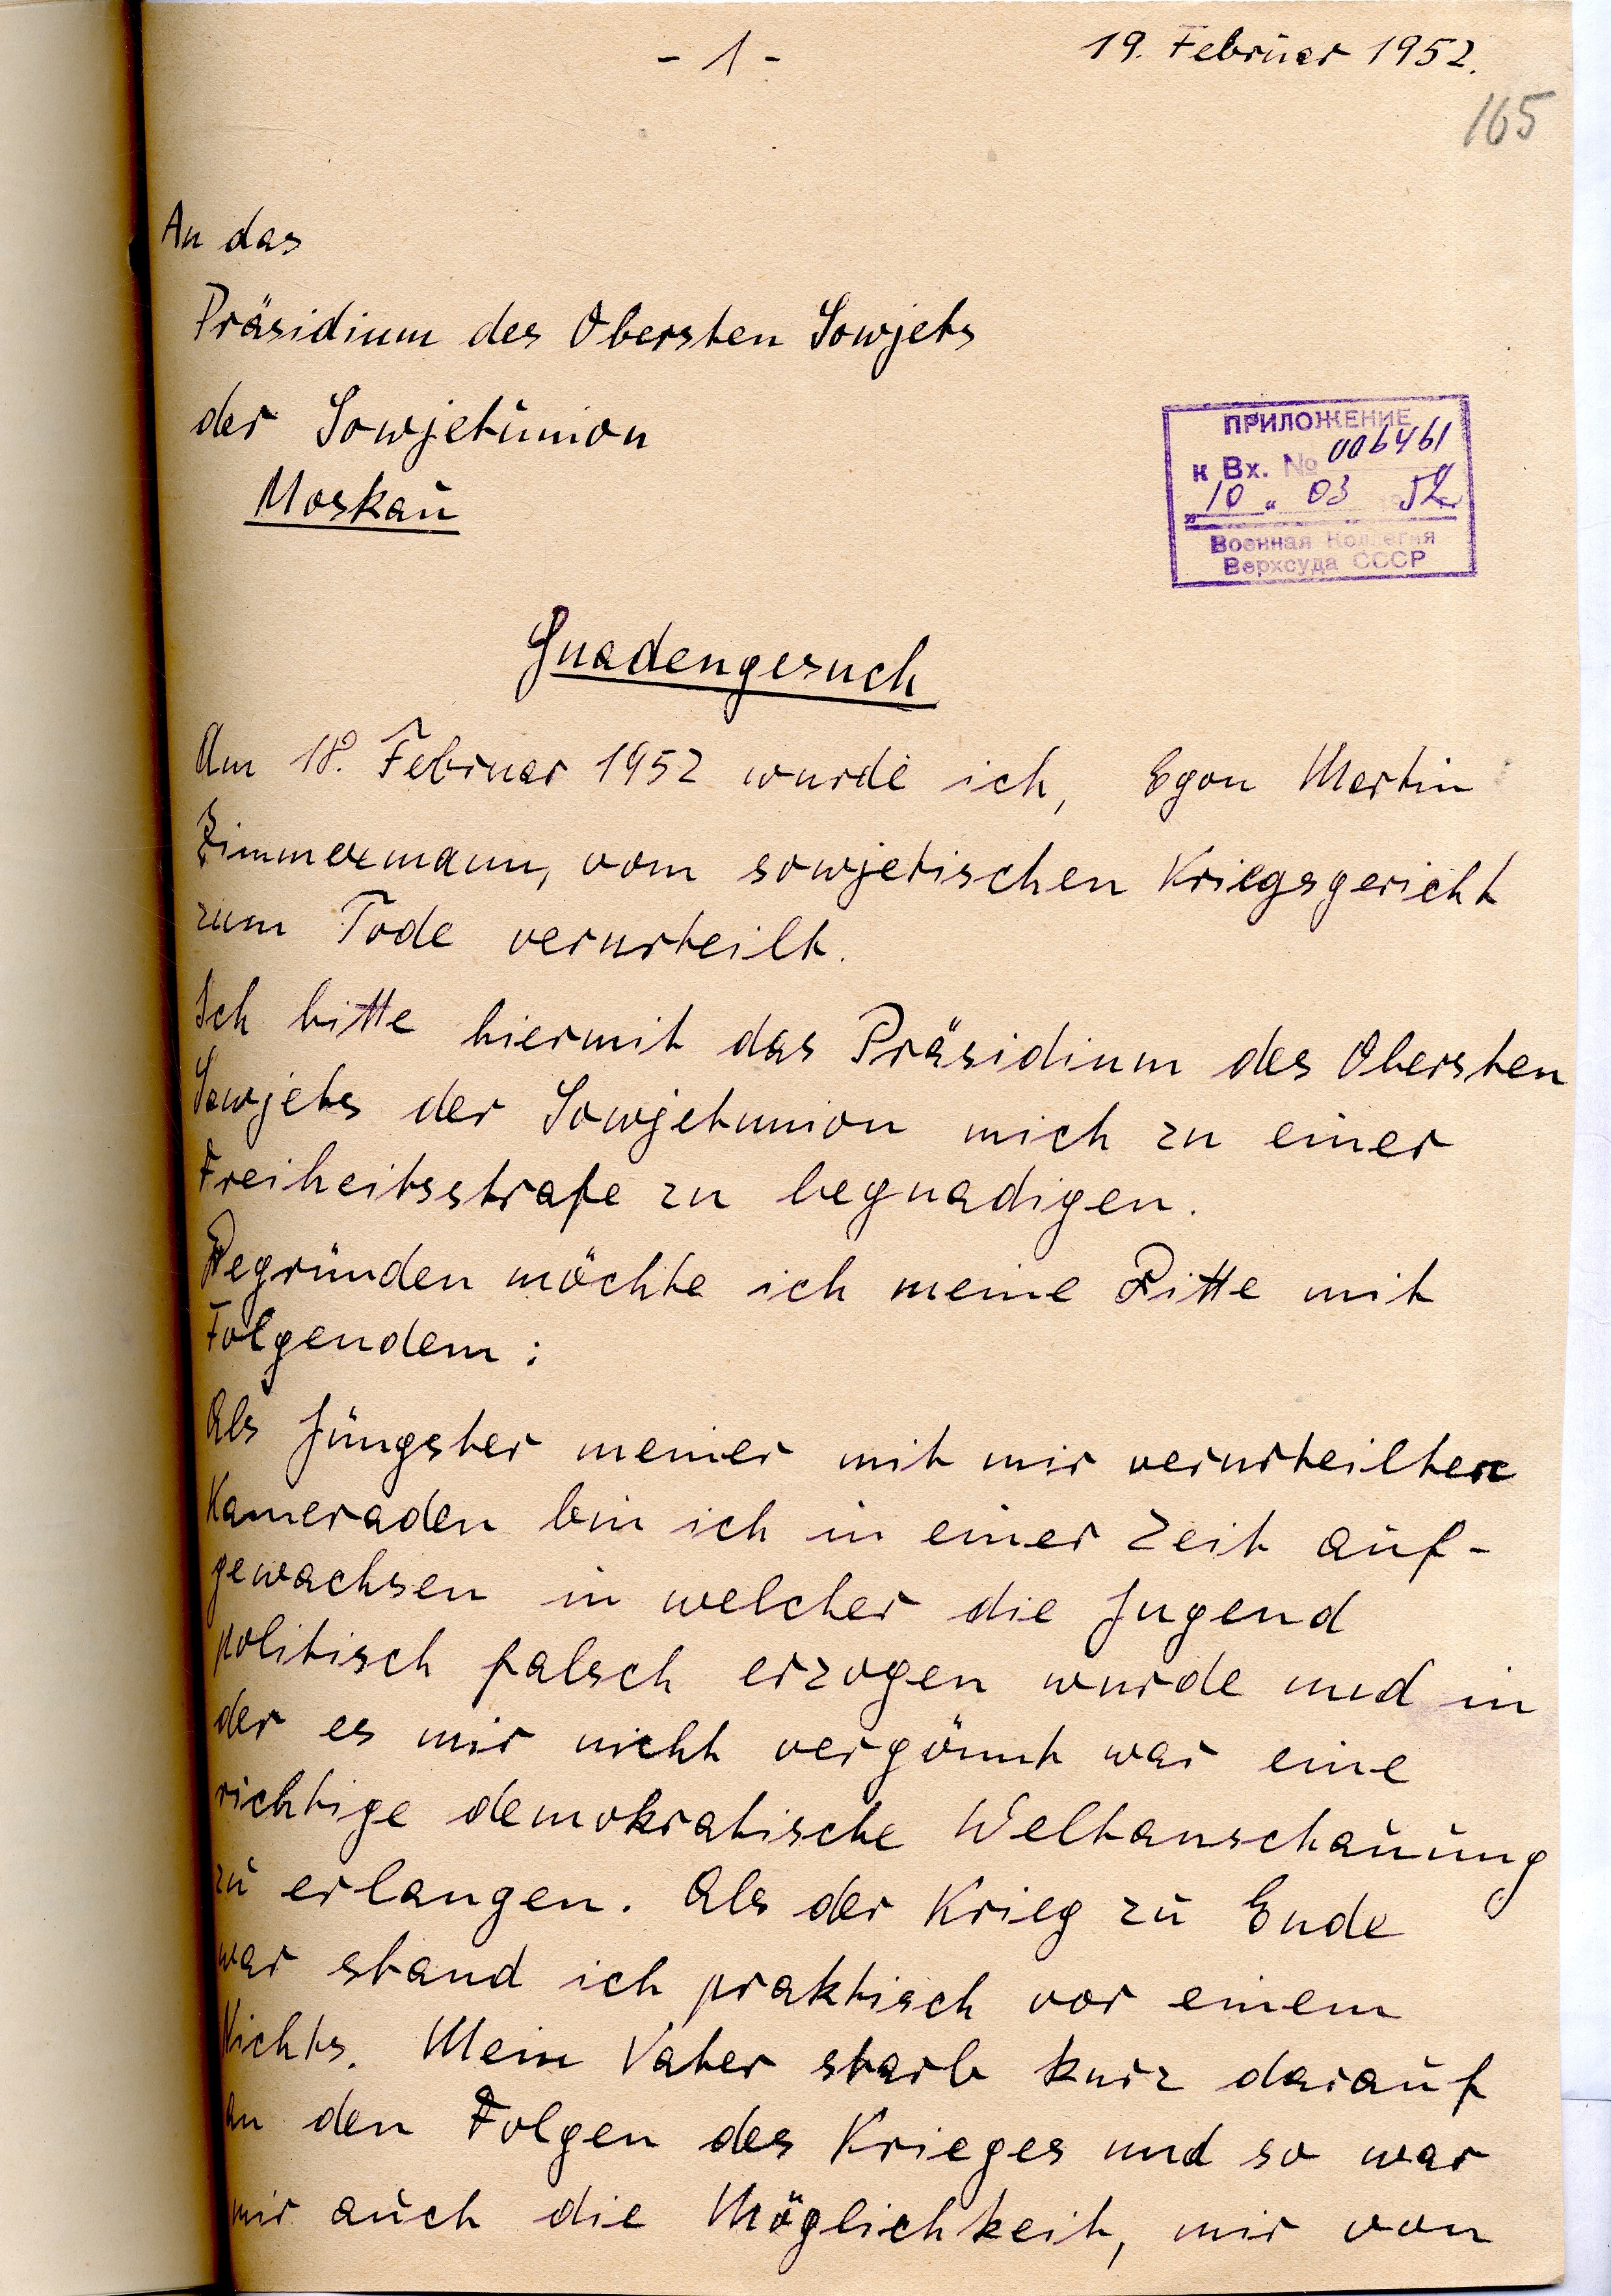 - 1 -
19. Februar 1952.
165
An das
Präsidium des Obersten Sowjets
der Sowjetunion
Moskau
ПРИЛОЖЕНИЕ
к Вх. № 006461
„10" 03 1952
Военная Коллегия
Верхсуда СССР
Gnadengesuch
Am 18. Februar 1952 wurde ich, Egon Martin
Zimmermann, vom sowjetischen Kriegsgericht
zum Tode verurteilt.
Ich bitte hiermit das Präsidium des Obersten
Sowjets der Sowjetunion mich zu einer
Freiheitsstrafe zu begnadigen.
Begründen möchte ich meine Bitte mit
Folgendem:
Als Jüngster meiner mit mir verurteilten
Kameraden bin ich in einer Zeit auf-
gewachsen in welcher die Jugend
politisch falsch erzogen wurde und in
der es mir nicht vergönnt war eine
richtige demokratische Weltanschauung
zu erlangen. Als der Krieg zu Ende
war stand ich praktisch vor einem
Nichts. Mein Vater starb kurz darauf
an den Folgen des Krieges und so war
mir auch die Möglichkeit, mir von